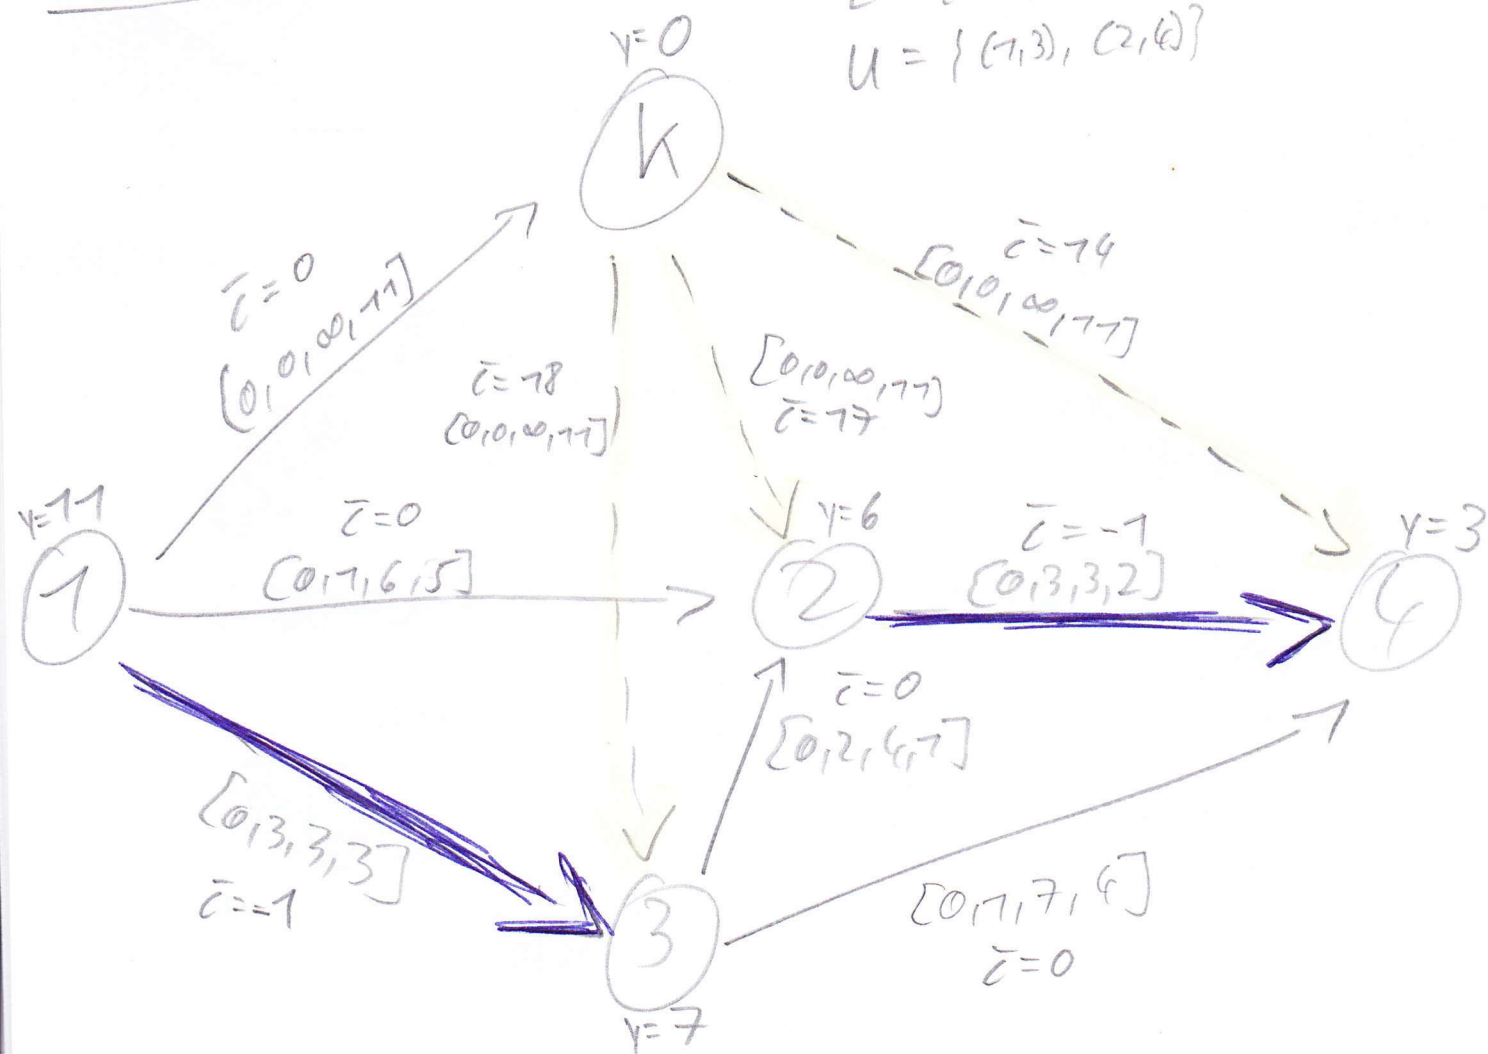 U = {(1,3), (2,4)}
y=0
k
c̄=14
[0,0,∞,11]
c̄=0
[0,0,∞,11]
c̄=18
[0,0,∞,11]
[0,0,∞,11]
c̄=17
y=11
1
c̄=0
[0,1,6,5]
y=6
2
c̄=-1
[0,3,3,2]
y=3
4
c̄=0
[0,2,4,1]
[0,3,3,3]
c̄=-1
3
y=7
[0,1,7,4]
c̄=0